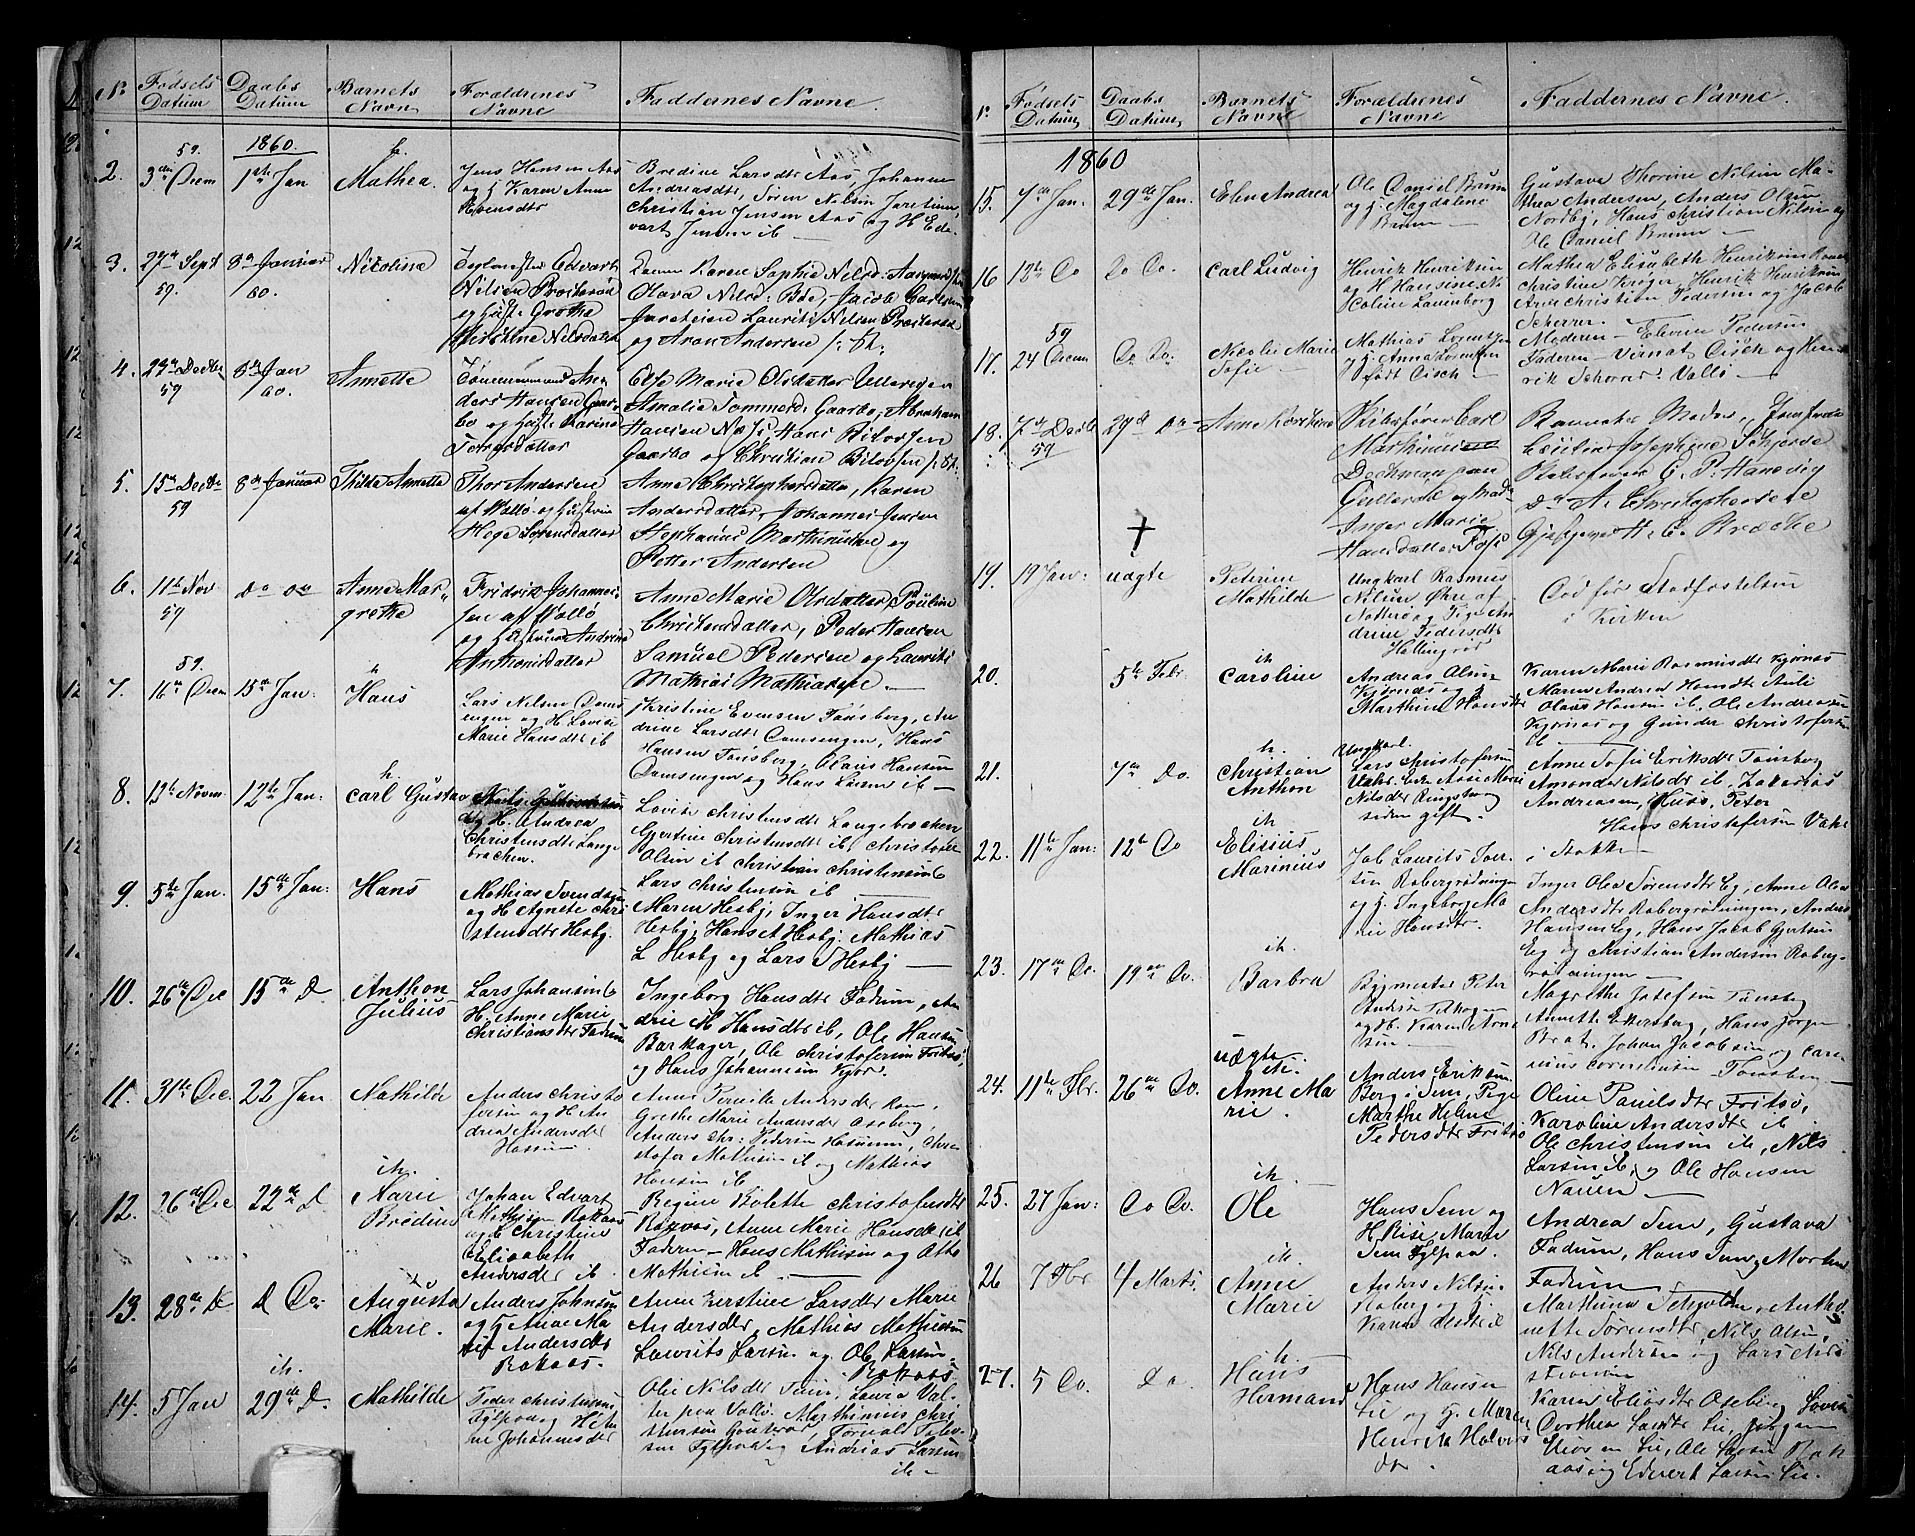 N:
Fødsels Datum
Daabs Datum
Barnets Navn
Forældrenes Navne
Faddernes Navne.
59.
1860.
2.
3die Decm
1ste Jan
h.
Mathea.
Jens Hansen Aas
og h. Karen Anne
Evensdtr
Bredine Larsdtr Aas, Johanne
Andreasdtr, Søren Nilsen Jareteien,
Christian Jensen Aas og H. Ed-
vart Jensen ib —
3.
27de Sept
59.
8de Januar
60.
Nicoline
Edvart
Nilsen Præsterød
og Hustr. Grethe
Kirstine Nilsdatter
Karen Sophie Nilsd:
Olava Nilsd: Bøe, Jacob Carlsen
Jareteien Laurits Nilsen Præsterød
og Aron Andersen
4.
29de Decbr
59
8de Jan
60.
Annette
Tømmermand An-
ders Hansen Gaar-
bo og Hustr. Karine
Torgersdatter
Else Marie Olsdatter
Amalie Sommerd: Gaarbo, Abraham
Hansen Næs, Hans
Gaarbo og Christian
5.
15de Decbr
59
8de Januar
Thilda Annette
Thor Andersen
af Valló og Hustru
Hege Sørensdatter
Anne Christophersdatter, Karen
Andersdatter, Johannes Jensen
Stephanus Marthiniusen og
Petter Andersen
6.
11te Nov
59
do do
Anne Mar-
grethe
Fridrik Johannes-
sen af Valló
og Hustrue Andrine
Anthonisdatter
Anne Marie Olsdatter, Pouline
Christensdatter, Peder Hansen
Samuel Pedersen og Laurits
Mathias Mathiasen —
7.
59.
16de Decm
15de Jan:
h
Hans
Lars Nilsen Dams-
engen og H. Lovise
Marie Hansdtr ib
Kristine Evensen Tønsberg, An-
drine Larsdtr Damsengen, Hans
Hansen Tønsberg, Olaus Hansen
Damsengen og Hans Larsen ib —
8.
13de Novem
12te Jan:
h.
Carl Gustav
og H. Andrea
Christensdtr Lange-
brachen.
Lovise Christensdtr Langebrachen
Gjertine Christensdtr ib, Christoffer
Olsen ib Christian Christensen &
Lars Christensen ib —
9.
5te Jan.
15de Jan:
Hans
Mathias Svendsen
og H. Agnete Chri-
stensdtr Hesby.
Maren Hesby, Inger Hansdtr
Hesby, Hans A Hesby. Mathias
L Hesby og Lars S Hesby —
10.
26de Dec
15de D
Anthon
Julius
Lars Johansen &
H. Anne Marie
Christiansdtr Fadum
Ingeborg Hansdtr Fadum, An-
drie M Hansdtr ib, Ole Hansen
Barkager, Ole Christofersen Fritsø,
og Hans Johannesen Kjær.
11.
31te Dec.
22 Jan
Mathilde
Anders Christo-
fersen og H. An-
drea Andersdtr
Hassum.
Anne Pernille Andersdtr Rom,
Grethe Marie Andersdtr Oseberg,
Anders Chr: Pedersen Hassum, Chri-
stofer Mathisen ib og Mathias
Hansen ib
12.
26de Dec
22de D.
ih.
Marie
Bredine
Johan Edvart
Mathisen Bakaas
og H. Christine
Elisabeth
Andersdtr ib.
Regine Bolette Christofersdtr
Basaas, Anne Marie Hansdtr ib
Faderen — Hans Mathisen og Otto
Mathisen ib. —
13.
28de D
D Do.
Augusta
Marie.
Anders Johnsen
og h Anne Ma-
rie Andersdtr
Bakaas.
Anne Kerstine Larsdtr Marie
Andersdtr, Mathias Mathisen
Laurits Larsen og Ole Larsen
Bakaas
14.
5 Jan
29de D.
ih.
Mathilde
Peder Christensen
Fylpaa og H. An-
ne Johannesdtr
Olie Nilsdtr Sem, Lovia Val-
ter paa Vallø, Marthinius Chri-
stensen
Fylpaa og Andrias Larsen
ib —
N:
Fødsels Datum
Daabs Datum
Barnets Navne
Forældrenes Navne
Faddernes Navne.
1860
15.
7de Jan.
29de Jan.
Elen Andrea
Ole Daniel Bruun
og h. Magdalene
Bruun —
Gustava Thorine Nilsen Ma-
thea Andersen, Anders Olsen
Nordby, Hans Christian Nilsen og
Ole Daniel Bruun —
16
13de Do
Do Do.
Carl Ludvig
Henrik Henriksen
og H Hansine Ni-
coline Lauenborg
Mathea Elisabeth Henriksen
Christine Krøger, Henrik Henriksen
Arne Christian Pedersen og Jacob
Scherrer.
17.
59
24 Decem
Do Do.
Nicolai Marie
Sofie
Mathias Lorentsen
og h. Anna Lorentsen
født Cisch —
Moderen — Elevine Pedersen
Faderen — Virnat Cisch og Hen-
rik Schorer. Vallø —
18.
7de Decbr
59
29de Do
Anne Kirstine
Skibsfører Carl
Marthinius
Dechman paa
Gullerød og Mad:
Inger Marie
Hansdatter
Barnets Moder, Jomfrue
Cecilie Josephine Schjerve
Skibsfører C. P. Hansvig
Do A. Christophersen
Gjestgever H. C. Bræcke
✝
19.
19 Jan:
uægte
Petrine
Mathilde
Ungkarl Rasmus
Nilsen Øhre af
Nøtterø, Pige An-
drine Pedersdtr
Hellingrød
Død før Stadfæstelsen
i Kirken
20.
5te Febr
ih
Caroline
Andreas Olsen
Kjørnæs og h
Marthine Hansdtr
Karen Marie Rasmusdtr Kjørnæs
Maren Andrea Hansdtr Auli
Olaus Hansen ib, Ole Andreasen
Kjørnæs og Gunder Christofersen
ib —
21.
7de Do.
h.
Christian
Anthon
Ungkarl.
Lars Christofersen
Vaker Enke Aase Marie
Nilsdtr Ringshaug
siden gift.
Anne Sofie Eriksdtr Tønsberg
Amonder Nilsdtr ib, Zakarias
Andreasen, Huso, Peter
Hans Christofersen Vaker
i Stokke —
22.
11te Jan:
12te Do
ih
Elisius
Marinius
Job Laurits Iver-
sen Robergrødningen
og h. Ingeborg Ma-
rie Hansdtr.
Inger Olea Sørensdtr Eg, Anne Olea
Andersdtr Robergrødningen, Anders
Hansen Eg, Hans Jakob Gjertsen
Eeg og Christian Andersen Roberg-
rødningen —
23.
17de Do.
19de Do.
ih.
Barbra
Bygmester Peter
og H. Karen Arne-
sen —
Magrethe Josefsen Tønsberg
Annette Ekersberg, Hans Jørgen
Brat, Johan Jacobsen og Cari-
nius Cornelisen Tønsberg —
24.
11te Fbr.
26de Do.
uægte
ih.
Anne Ma-
rie.
Anders Eriksen
Berg i Sem, Pige
Marthe Helene
Pedersdtr Fritsø
Oline Paulsdtr Fritsø,
Karoline Andersdtr ib
Ole Christensen ib, Nils
Larsen ib og Ole Hansen
Nauen —
25.
27 Jan:
Do Do.
ih.
Ole
Hans Sem og
H. Risie Marie
Sem Fylpaa.
Andrea Sem, Gustava
Fadum, Hans Sem, Morten
Fadum —
26
7 Fbr
4 Marts
ih.
Anne
Marie
Anders Nilsen
Roberg og h.
Karen Olsdtr ib
Marthine Tufvolden, Antho-
nette Sørensdtr, Nils Olsen,
Nils Andersen og Lars Nils
27.
5 Do.
Do
h.
Hans
Hermand
Hans Hansen
Lie og h. Maren
Henrikke Halvors-
dtr.
Karen Eliasdtr Oseberg, Lovise
Dorthea Larsdtr Lie, Jørgen
Lie, Ole Larsen Bak-
aas og Edvert Larsen Lie.